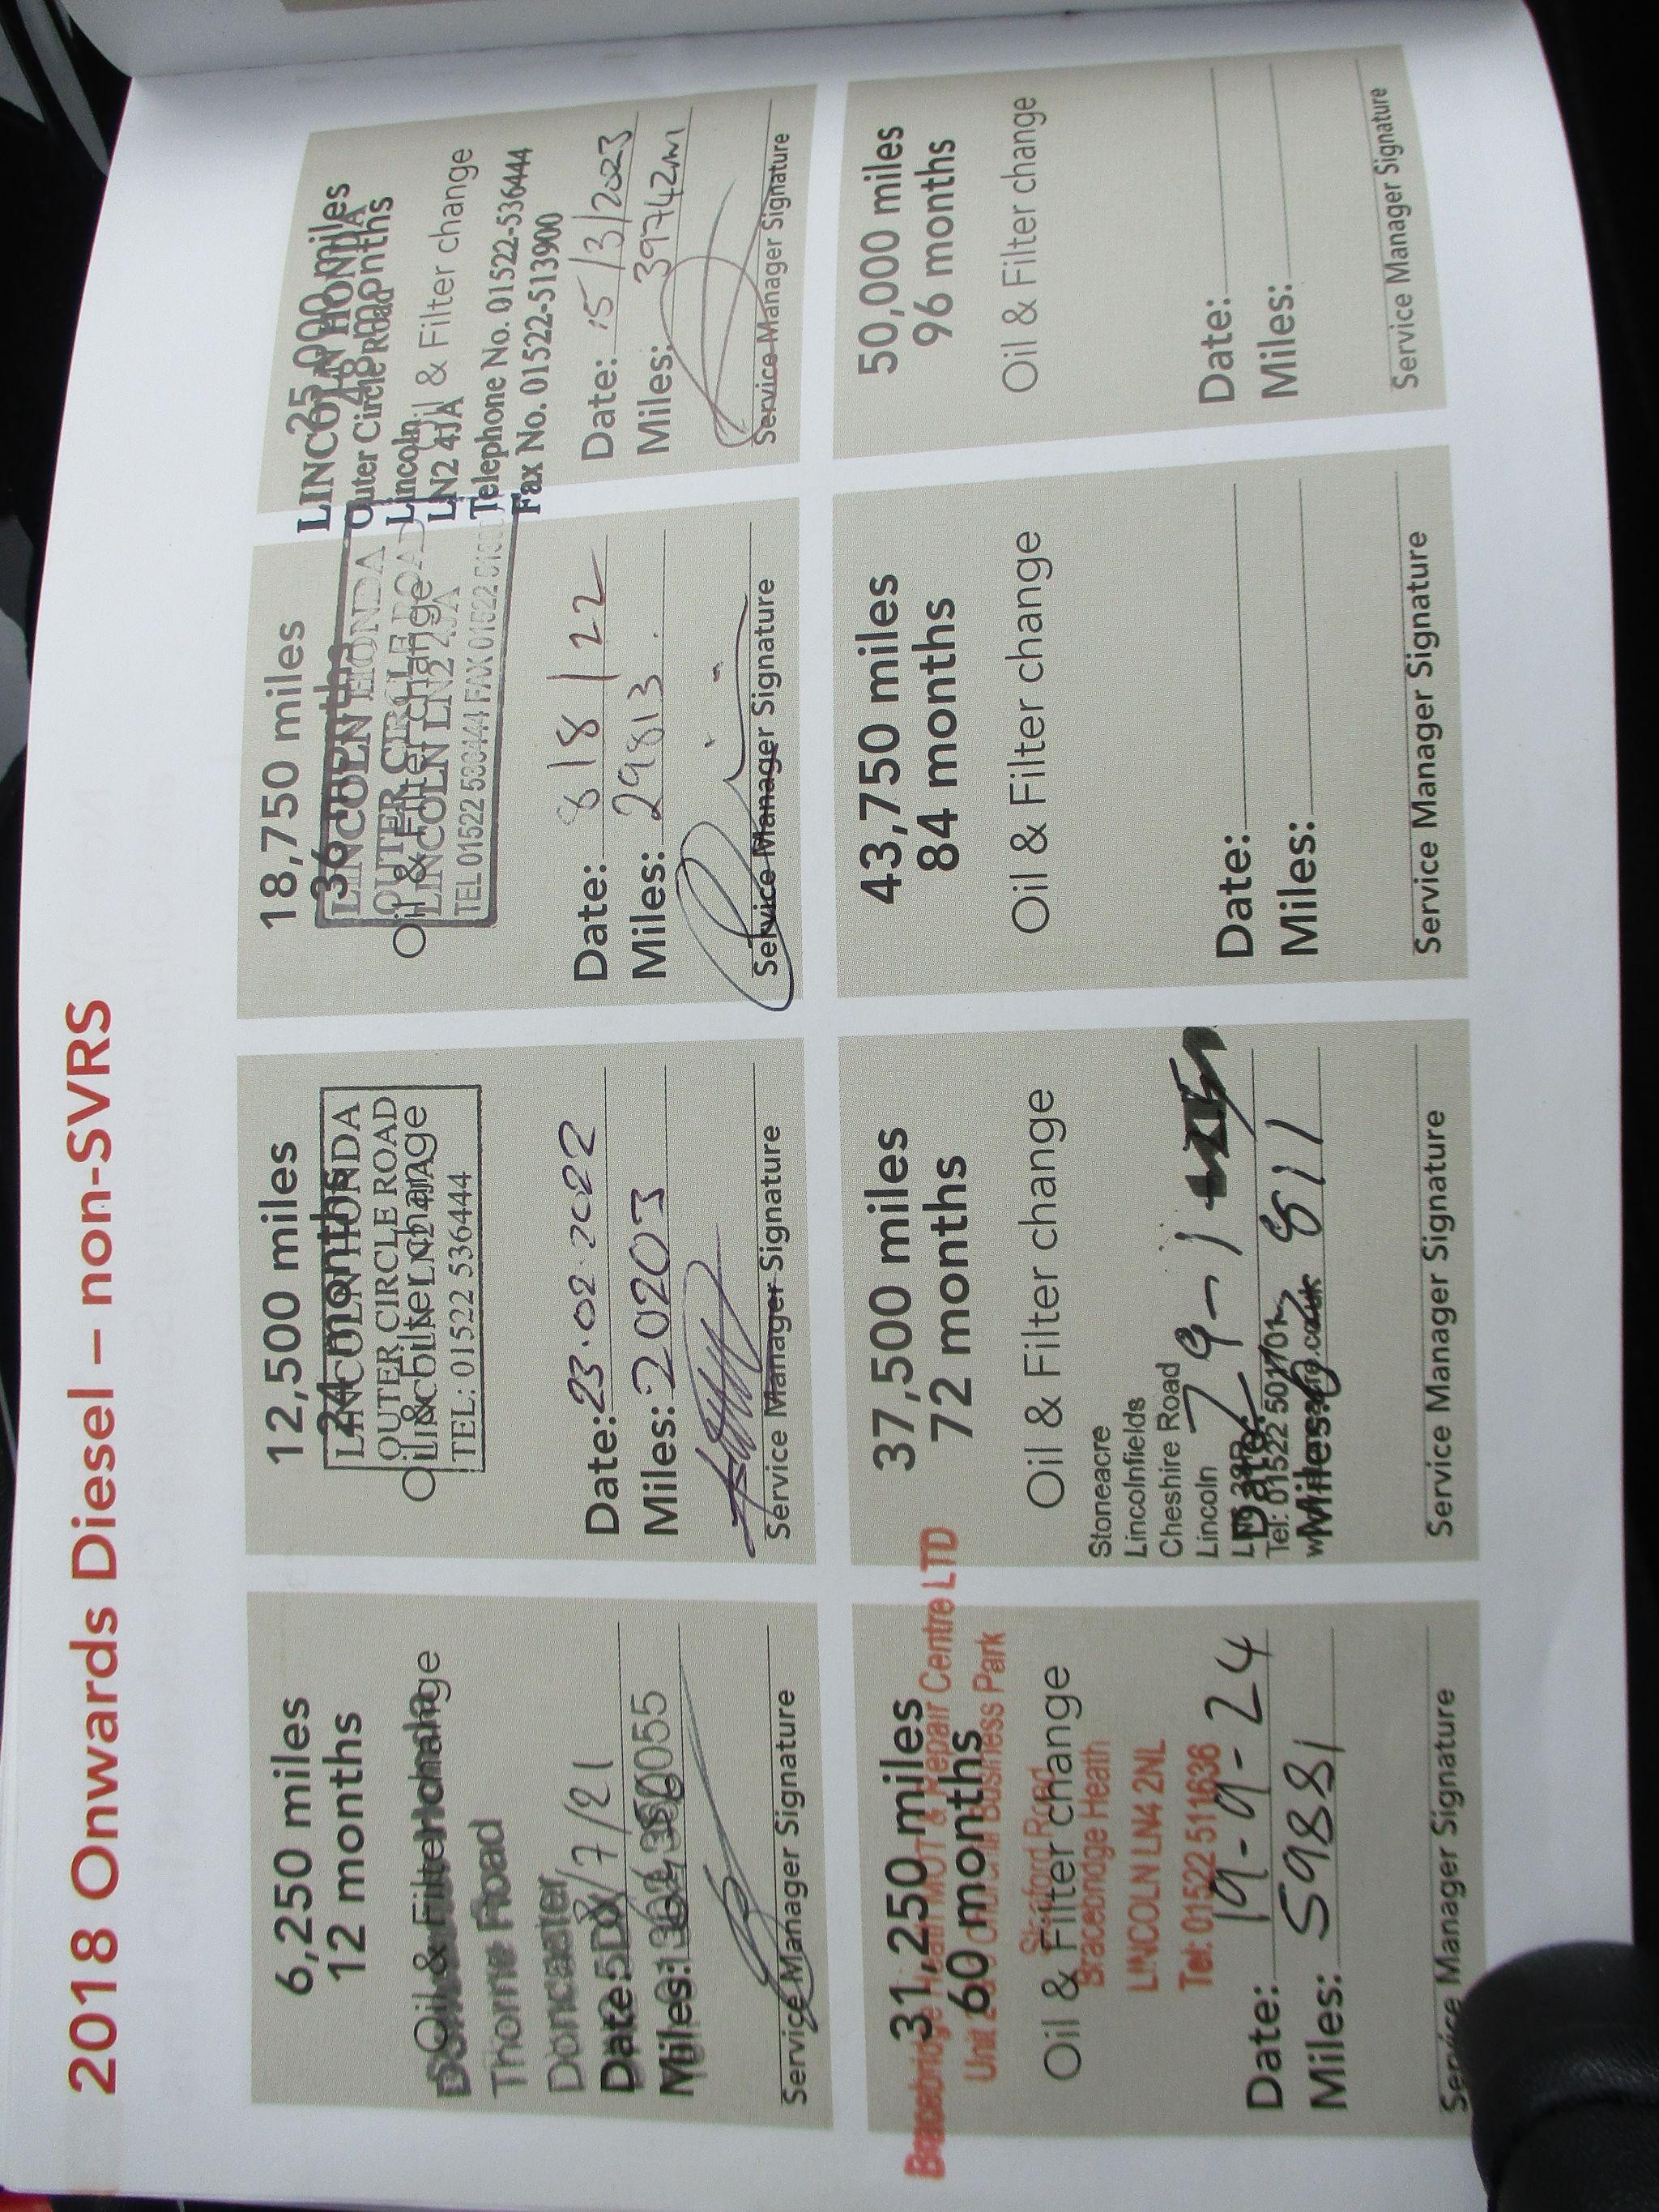 2018 Onwards Diesel – non-SVRS
6,250 miles
12 months
Oil & Filter change
Thorne Road
Doncaster
Date: 8/7/21
Miles:
Service Manager Signature
12,500 miles
24 months
LINCOLN HONDA
OUTER CIRCLE ROAD
Oil & Filter change
LINCOLN LN2 4JA
TEL: 01522 536444
Date: 23.02.2022
Miles: 20203
Service Manager Signature
18,750 miles
36 months
LINCOLN HONDA
OUTER CIRCLE ROAD
Oil & Filter change
LINCOLN LN2 4JA
TEL 01522 536444 FAX 01522
Date: 8/8/22
Miles: 29813
Service Manager Signature
25,000 miles
LINCOLN HONDA
48 months
Outer Circle Road
Lincoln
Oil & Filter change
LN2 4JA
Telephone No. 01522-536444
Fax No. 01522-513900
Date: 15/3/2023
Miles: 39742mi
Service Manager Signature
31,250 miles
Bracebridge Heath MOT & Repair Centre LTD
60 months
Business Park
Oil & Filter change
Sleaford Road
Bracebridge Heath
LINCOLN LN4 2NL
Tel: 01522 511636
Date: 19-9-24
Miles: 59881
Service Manager Signature
37,500 miles
72 months
Oil & Filter change
Stoneacre
Lincolnfields
Cheshire Road
Lincoln
Date:
Tel: 01522 501701
Miles:
Service Manager Signature
43,750 miles
84 months
Oil & Filter change
Date:
Miles:
Service Manager Signature
50,000 miles
96 months
Oil & Filter change
Date:
Miles:
Service Manager Signature